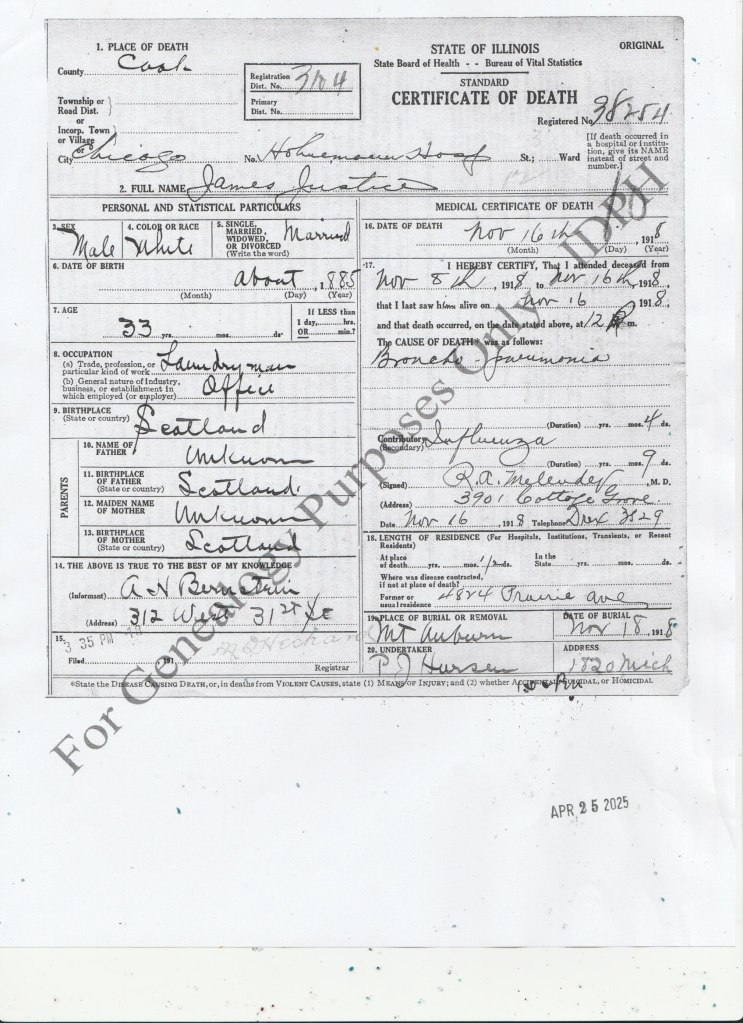 1. PLACE OF DEATH
County Cook
Registration Dist. No. 3104
Township or Road Dist. or
Primary Dist. No.
Incorp. Town or Village or
City Chicago No. Hahnemann Hosp St.; Ward
2. FULL NAME James Justice
STATE OF ILLINOIS
ORIGINAL
State Board of Health - - Bureau of Vital Statistics
STANDARD
CERTIFICATE OF DEATH
Registered No. 38254
[If death occurred in a hospital or institution, give its NAME instead of street and number.]
PERSONAL AND STATISTICAL PARTICULARS
3. SEX Male
4. COLOR OR RACE White
5. SINGLE, MARRIED, WIDOWED, OR DIVORCED (Write the word) Married
6. DATE OF BIRTH about , 1885
(Month) (Day) (Year)
7. AGE 33 yrs. mos. ds.
If LESS than 1 day, hrs. OR min.?
8. OCCUPATION
(a) Trade, profession, or particular kind of work Laundryman
(b) General nature of industry, business, or establishment in which employed (or employer) Office
9. BIRTHPLACE (State or country) Scotland
PARENTS
10. NAME OF FATHER Unknown
11. BIRTHPLACE OF FATHER (State or country) Scotland
12. MAIDEN NAME OF MOTHER Unknown
13. BIRTHPLACE OF MOTHER Scotland
14. THE ABOVE IS TRUE TO THE BEST OF MY KNOWLEDGE
(Informant) A H Bernstein
(Address) 312 West 31st
15.
3 35 PM
Filed , 191
Registrar
MEDICAL CERTIFICATE OF DEATH
16. DATE OF DEATH Nov 16th , 1918
(Month) (Day) (Year)
17. I HEREBY CERTIFY, That I attended deceased from
Nov 8th , 1918, to Nov 16th 1918,
that I last saw him alive on Nov 16 1918,
and that death occurred, on the date stated above, at 12 P m.
The CAUSE OF DEATH was as follows:
Broncho-pneumonia
(Duration) yrs. mos. 4 ds.
Contributory (Secondary) Influenza
(Duration) yrs. mos. 9 ds.
(Signed) R. A. , M. D.
(Address) 3901 Cottage Grove
Date Nov 16 , 1918 Telephone Drex 3829
18. LENGTH OF RESIDENCE (For Hospitals, Institutions, Transients, or Recent Residents)
At place of death yrs. mos. ds. In the State yrs. mos. ds.
Where was disease contracted, if not at place of death?
Former or usual residence 4824 Prairie ave
19. PLACE OF BURIAL OR REMOVAL Mt Auburn
DATE OF BURIAL Nov 18, 1918
20. UNDERTAKER P J Hursen
ADDRESS 1820 Mich
*State the DISEASE CAUSING DEATH, or, in deaths from VIOLENT CAUSES, state (1) MEANS OF INJURY; and (2) whether ACCIDENTAL, SUICIDAL, OR HOMICIDAL
For Genealogy Purposes Only IDPH
APR 25 2025